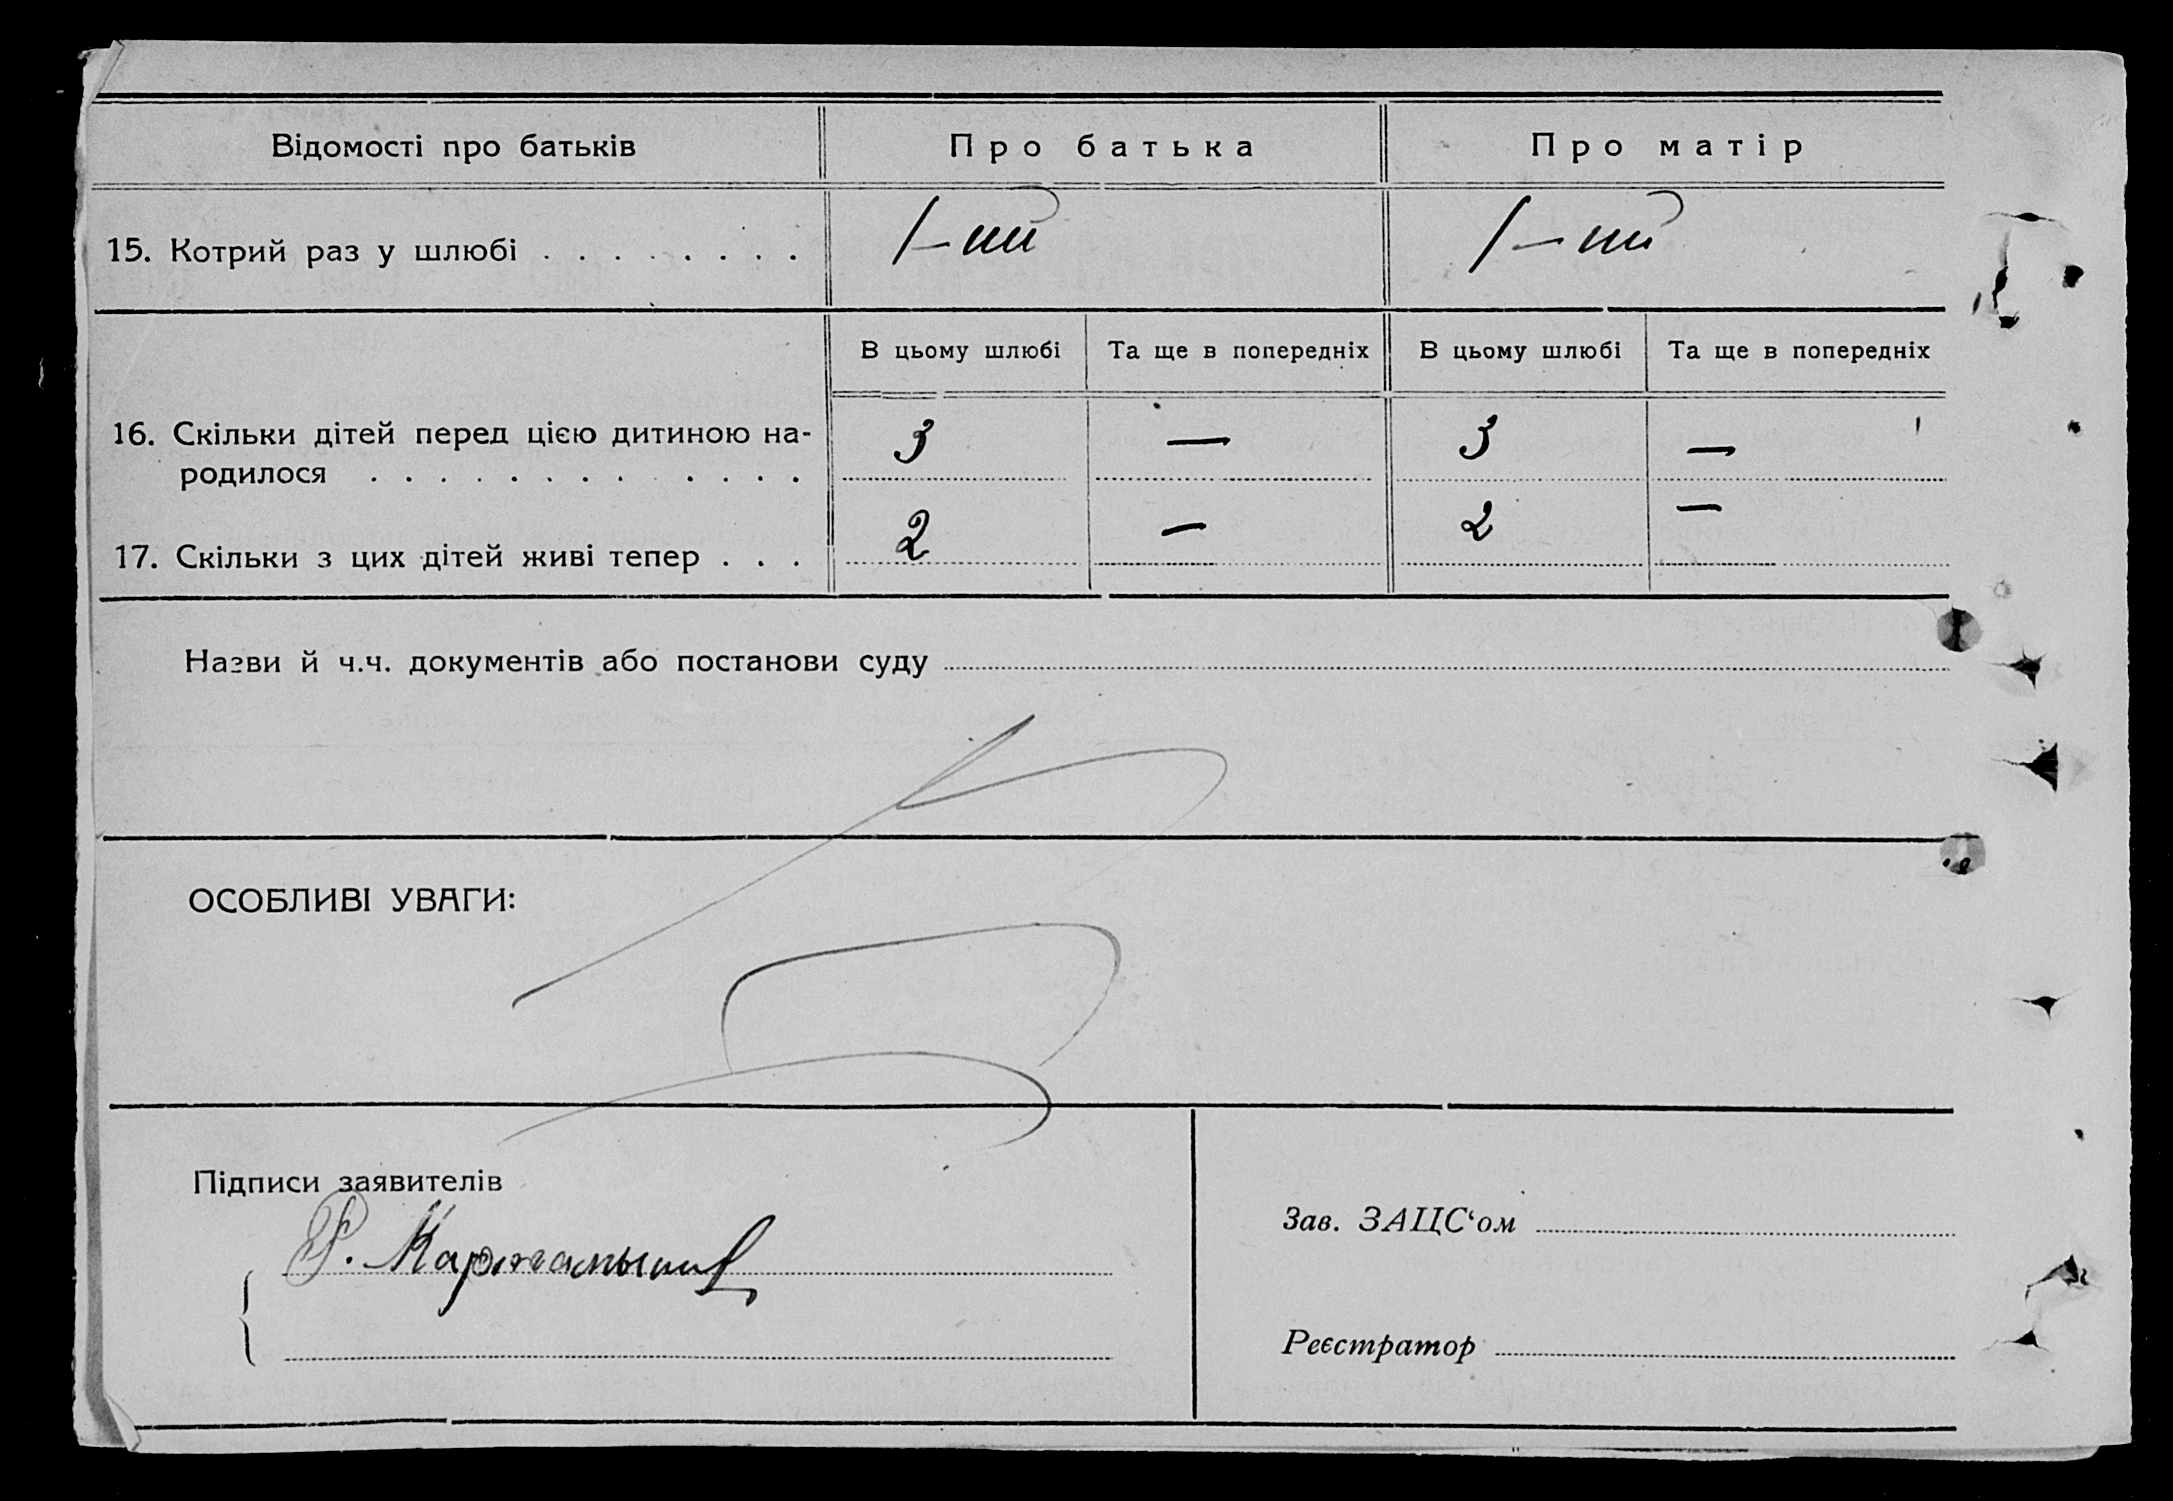 Відомості про батьків Про батька Про матір
15. Котрий раз у шлюбі . . . . . . . . 1-ий 1-ий
В цьому шлюбі Та ще в попередніх В цьому шлюбі Та ще в попередніх
16. Скільки дітей перед цією дитиною на-
родилося . . . . . . . . . . . . 3 — 3 —
17. Скільки з цих дітей живі тепер . . . 2 — 2 —
Назви й ч.ч. документів або постанови суду
ОСОБЛИВІ УВАГИ:
Підписи заявителів
Зав. ЗАЦС‘ом
Реєстратор